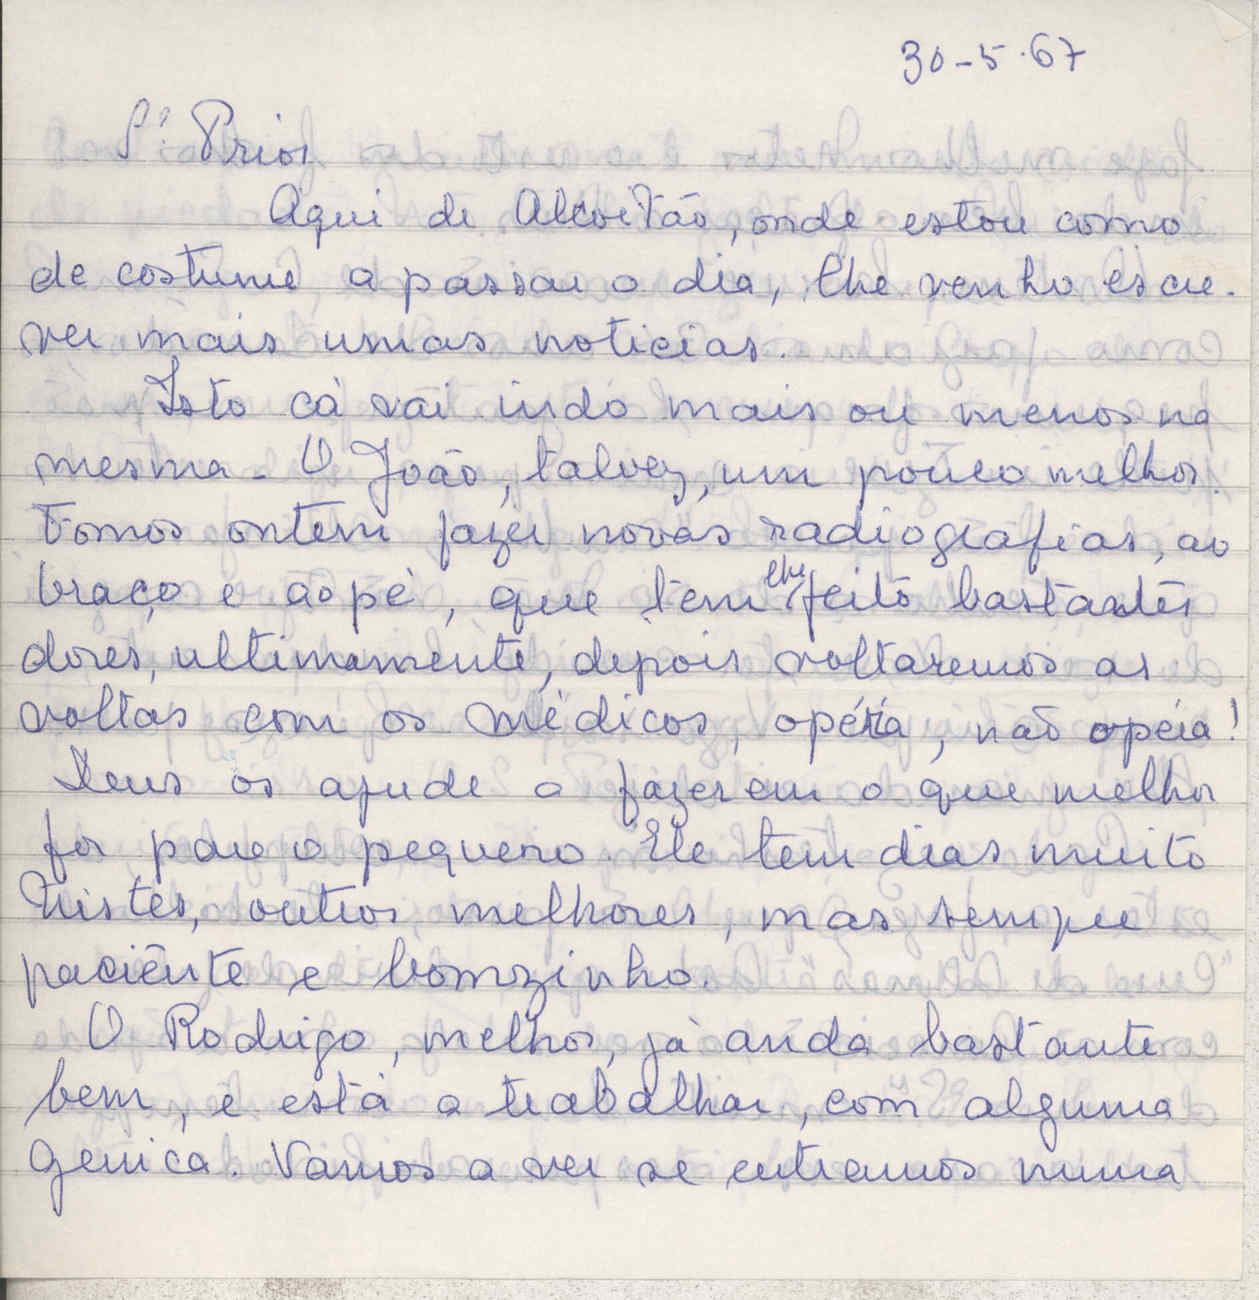 30-5-67
Sr. Prior
Aqui de Alcoitão, onde estou como
de costume a passar o dia, lhe venho escre-
ver mais umas noticias.
Isto cá vai indo mais ou menos na
mesma. O João, talvez, um pouco melhor.
Fomos ontem fazer novas radiografias, ao
braço e ao pé, que tem lhe feito bastantes
dores, ultimamente, depois voltaremos as
voltas com os médicos, opéra, não opéra!
Deus os ajude a fazerem o que melhor
for para o pequeno. Ele tem dias muito
tristes, outros melhores, mas sempre
paciente e bomzinho.
O Rodrigo, melhor, já anda bastante
bem, e está a trabalhar, com alguma
genica. Vamos a ver se entramos numa